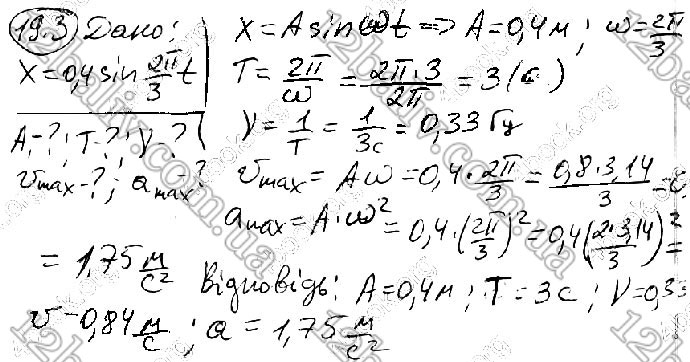 19.3 Дано:
x = 0,4 sin 2π/3 t
A - ?; T - ?; ν - ?
υmax - ?; amax - ?
x = A sin ωt => A = 0,4 м; ω = 2π/3
T = 2π/ω = 2π·3/2π = 3 (с)
ν = 1/T = 1/3с = 0,33 Гц
υmax = Aω = 0,4 · 2π/3 = 0,8·3,14/3 = 0,
amax = A·ω² = 0,4·(2π/3)² = 0,4(2·3,14/3)² =
= 1,75 м/с²
Відповідь: A = 0,4м; T = 3с; ν = 0,33
υ - 0,84 м/с; a = 1,75 м/с²